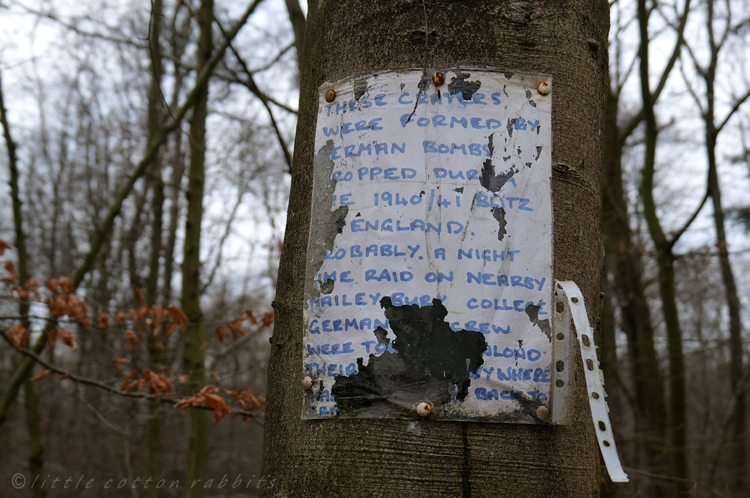 THESE CRATERS
WERE FORMED BY
ERMAN BOMBS
ROPPED DUR
E 1940/41 BLITZ
ENGLAND
ROBABLY. A NIGHT
ME RAID ON NEARBY
HAILEY BURY COLLEGE
GERMAN CREW
WERE TO
THEIR YWHERE
BACK TO
©little cotton rabbits